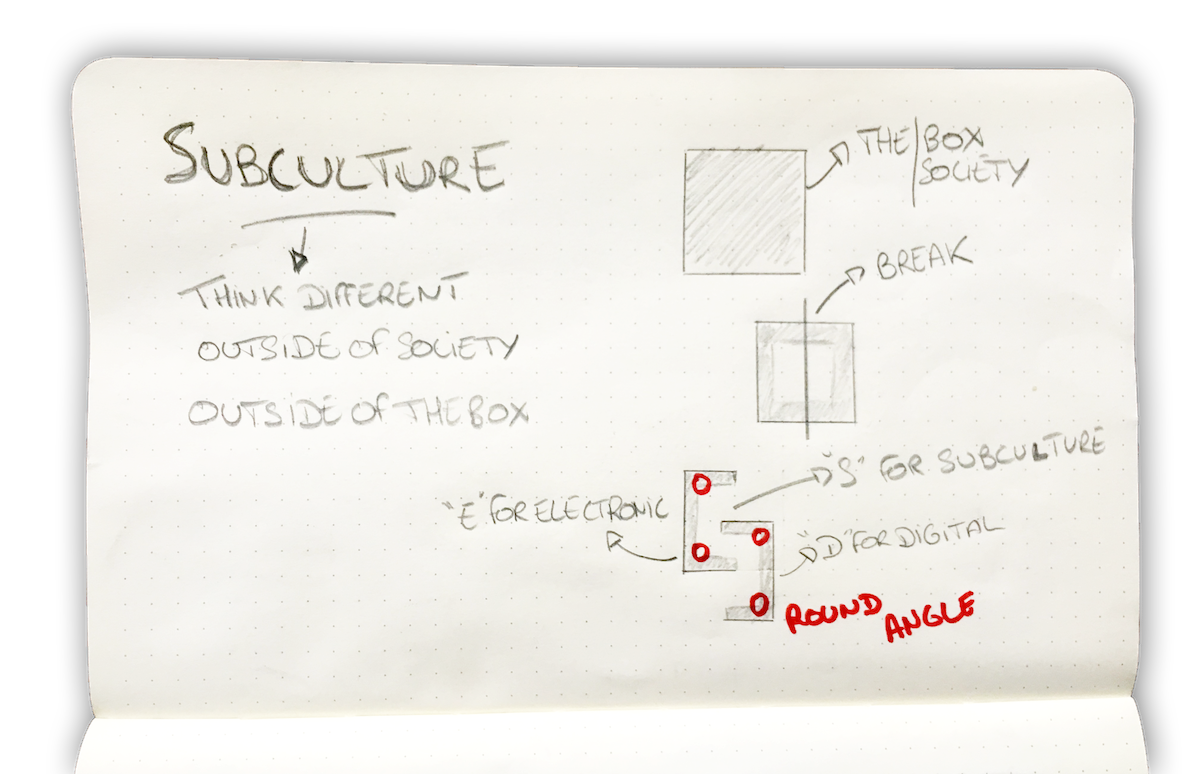 SUBCULTURE
THINK DIFFERENT
OUTSIDE OF SOCIETY
OUTSIDE OF THE BOX
THE BOX
SOCIETY
BREAK
"S" FOR SUBCULTURE
"E" FOR ELECTRONIC
"D" FOR DIGITAL
ROUND
ANGLE